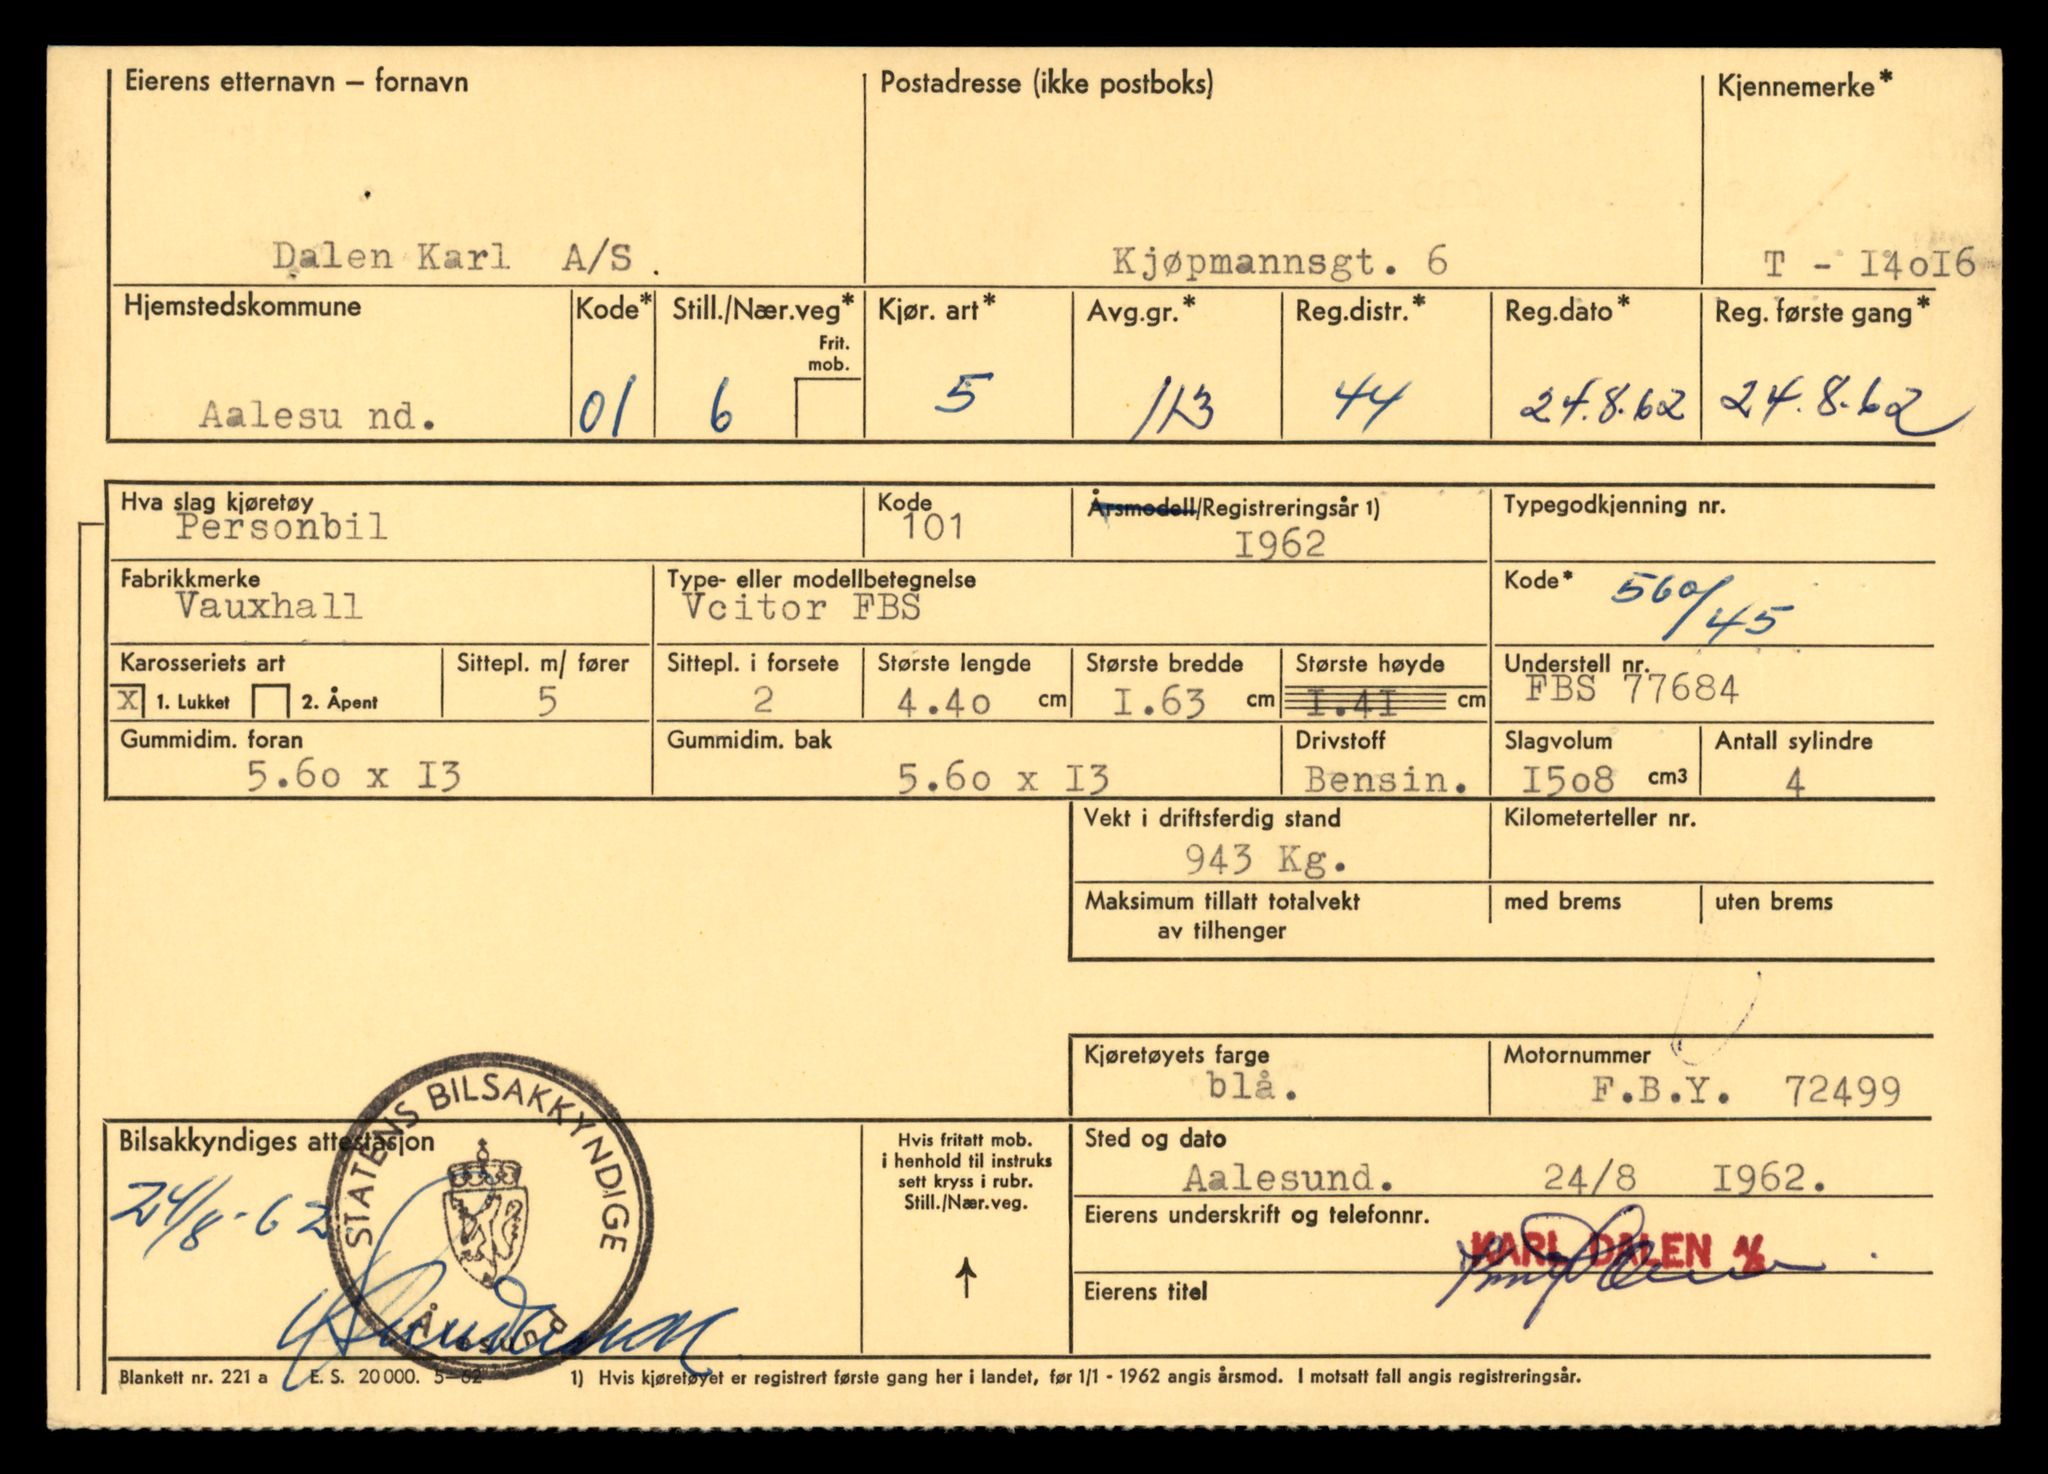 Eierens etternavn – fornavn
Dalen Karl A/S.
Postadresse (ikke postboks)
Kjøpmannsgt. 6
Kjennemerke*
T - I4oI6
Hjemstedskommune
Aalesu nd.
Kode*
01
Still./Nær.veg*
Frit.
mob.
6
Kjør. art*
5
Avg.gr.*
113
Reg.distr.*
44
Reg.dato*
24.8.62
Reg. første gang*
24.8.62
Hva slag kjøretøy
Personbil
Kode
101
Årsmodell/Registreringsår 1)
I962
Typegodkjenning nr.
Fabrikkmerke
Vauxhall
Type- eller modellbetegnelse
Vcitor FBS
Kode*
560/45
Karosseriets art
X 1. Lukket 2. Åpent
Sittepl. m/ fører
5
Sittepl. i forsete
2
Største lengde
4.4o cm
Største bredde
I.63 cm
Største høyde
I.4I cm
Understell nr.
FBS 77684
Gummidim. foran
5.6o x I3
Gummidim. bak
5.6o x I3
Drivstoff
Bensin.
Slagvolum
I5o8 cm3
Antall sylindre
4
Vekt i driftsferdig stand
943 Kg.
Kilometerteller nr.
Maksimum tillatt totalvekt
av tilhenger
med brems
uten brems
Kjøretøyets farge
blå.
Motornummer
F.B.Y. 72499
Bilsakkyndiges attestasjon
24/8-62
STATENS BILSAKKYNDIGE
Ålesund
Hvis fritatt mob.
i henhold til instruks
sett kryss i rubr.
Still./Nær.veg.
Sted og dato
Aalesund. 24/8 I962.
Eierens underskrift og telefonnr.
KARL DALEN A/S
Eierens titel
Blankett nr. 221 a E. S. 20 000. 5–62
1) Hvis kjøretøyet er registrert første gang her i landet, før 1/1 - 1962 angis årsmod. I motsatt fall angis registreringsår.